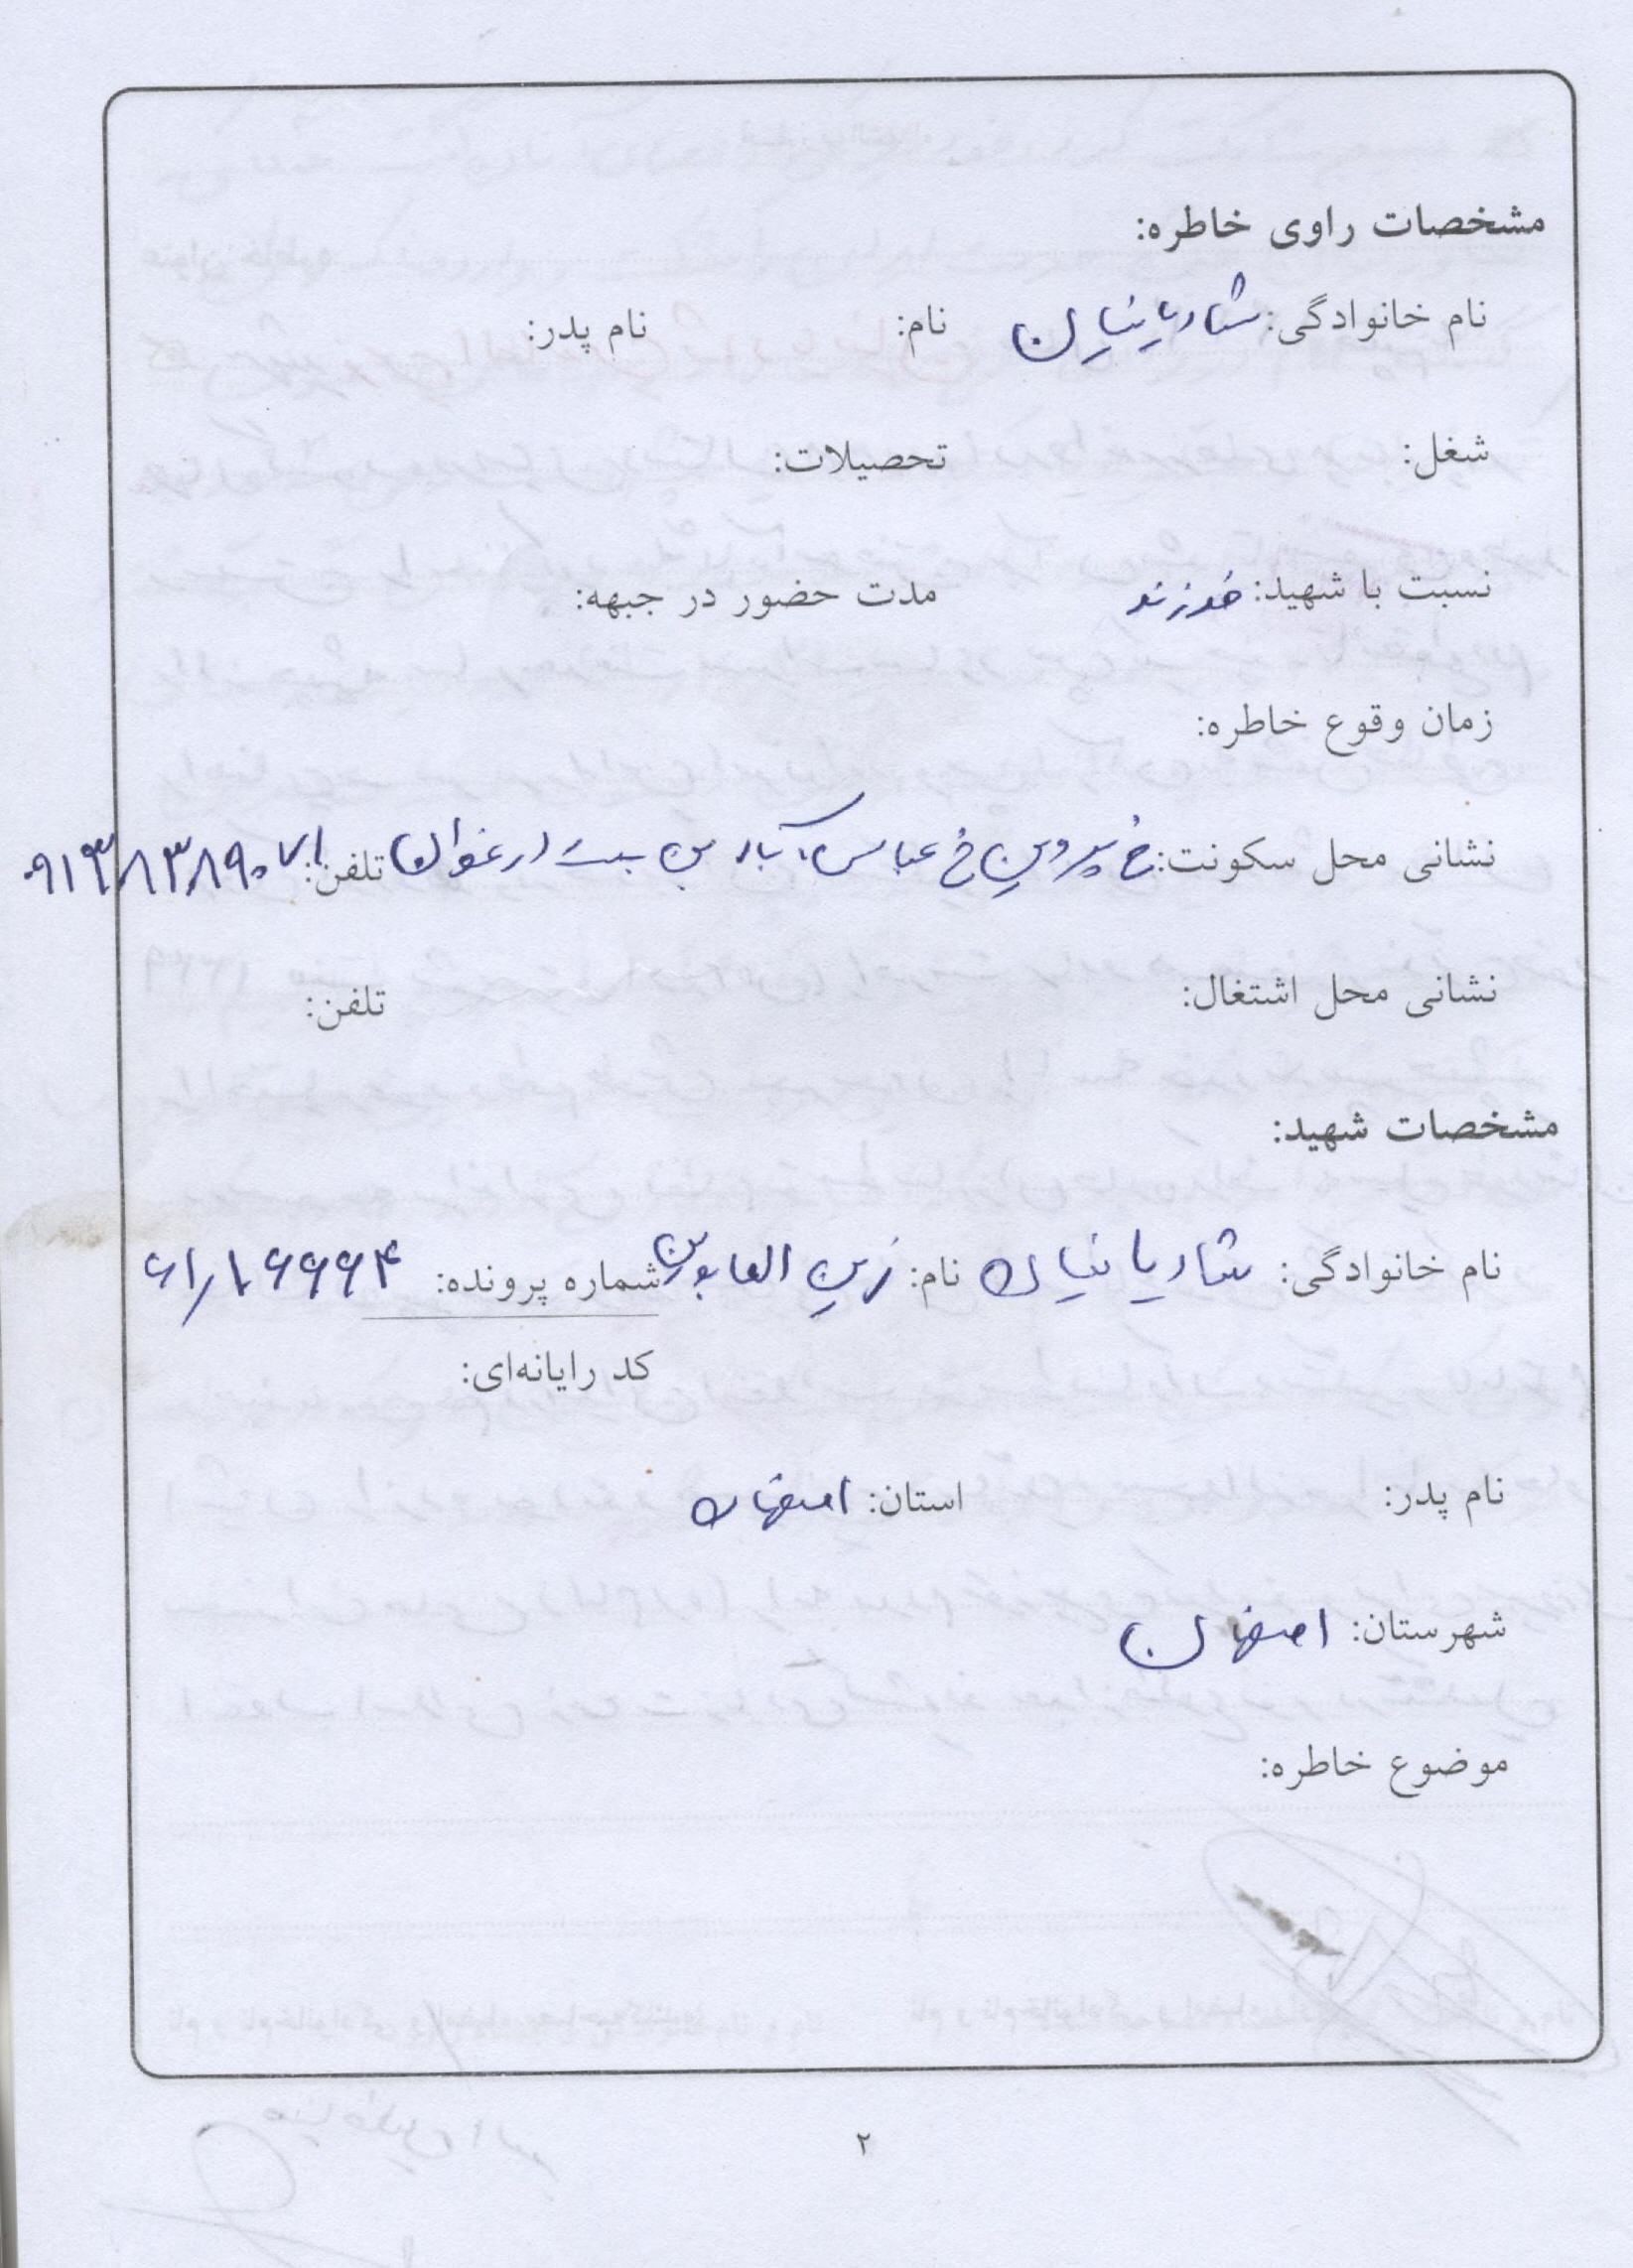 مشخصات راوی خاطره:
نام خانوادگی: شادیانیان نام: نام پدر:
شغل: تحصیلات:
نسبت با شهید: فرزند مدت حضور در جبهه:
زمان وقوع خاطره:
نشانی محل سکونت: خ پروین خ عباس آباد بن بست ارغوان تلفن: ۰۹۱۳۸۱۳۸۹۰۷۱
نشانی محل اشتغال: تلفن:
مشخصات شهید:
نام خانوادگی: شادیانیان نام: زین العابدین شماره پرونده: ۶۱/۱۶۶۶۴
کد رایانه‌ای:
نام پدر: استان: اصفهان
شهرستان: اصفهان
موضوع خاطره:
۲